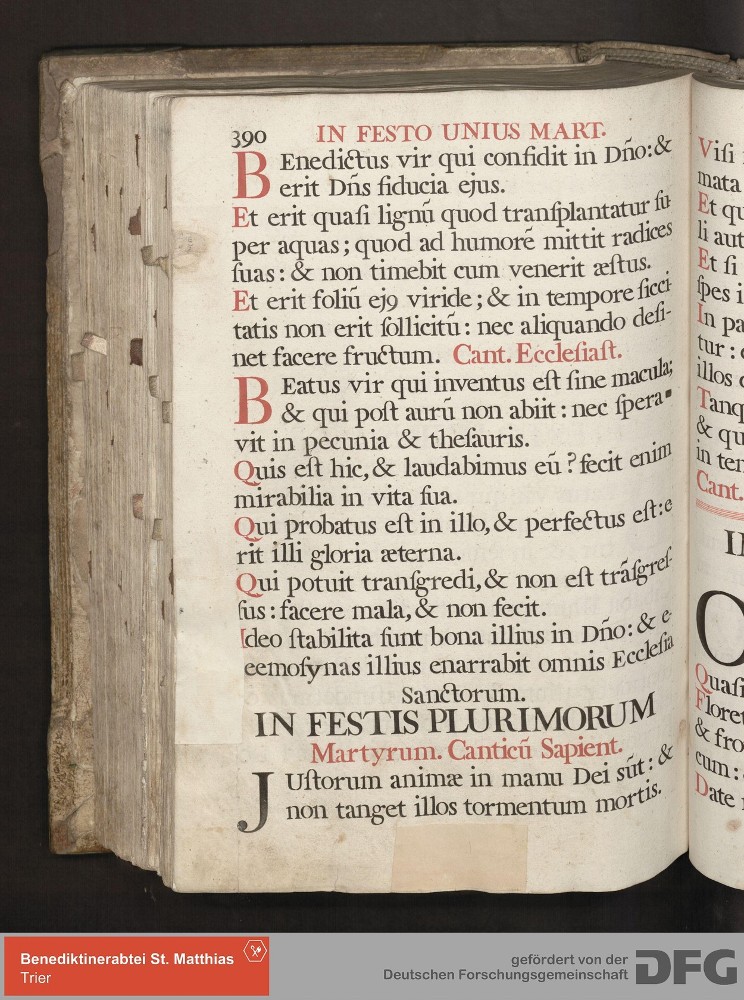 390 IN FESTO UNIUS MART.
BEnedictus vir qui confidit in Dño: &
erit Dñs fiducia ejus.
Et erit quaſi lignũ quod tranſplantatur ſu-
per aquas; quod ad humorẽ mittit radices
ſuas: & non timebit cum venerit æſtus.
Et erit foliũ ej9 viride; & in tempore ſicci-
tatis non erit ſollicitũ: nec aliquando deſi-
net facere fructum. Cant. Eccleſiaſt.
BEatus vir qui inventus eſt ſine macula;
& qui poſt aurũ non abiit: nec ſpera-
vit in pecunia & theſauris.
Quis eſt hic, & laudabimus eũ? fecit enim
mirabilia in vita ſua.
Qui probatus eſt in illo, & perfectus eſt: e
rit illi gloria æterna.
Qui potuit tranſgredi, & non eſt trãſgreſ-
ſus: facere mala, & non fecit.
Ideo ſtabilita ſunt bona illius in Dño: & e-
eemoſynas illius enarrabit omnis Eccleſia
Sanctorum.
IN FESTIS PLURIMORUM
Martyrum. Canticũ Sapient.
JUſtorum animæ in manu Dei sũt: &
non tanget illos tormentum mortis.
Viſi
mata
Et qu
li aut
Et ſi
ſpes i
In pa
tur:
illos
Tanq
& qu
in ten
Cant.
Quaſi
Floret
& fro
cum:
Date
Benediktinerabtei St. Matthias
Trier
gefördert von der
Deutschen Forschungsgemeinschaft
DFG